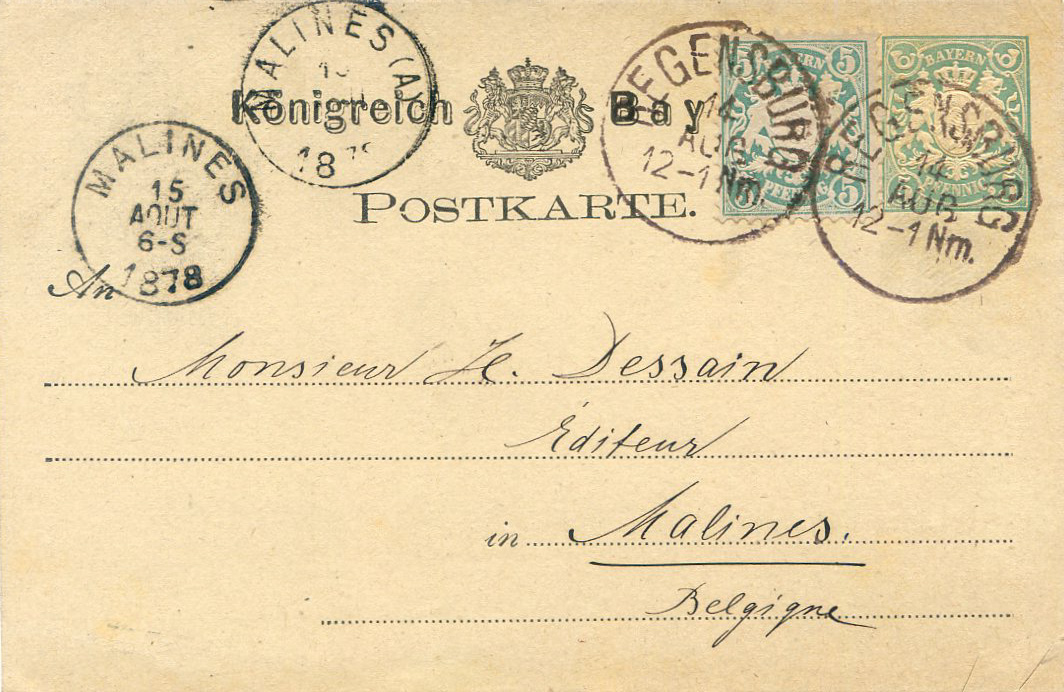 MALINES (A)
15
18 78
MALINES
15
AOUT
6-S
1878
Königreich Bay
POSTKARTE.
REGENSBURG
14
AUG
12-1 Nm.
BAYERN
5 5
PFENNIG
5
REGENSBURG
14
AUG
12-1 Nm.
BAYERN
5 5
PFENNIG
An
Monsieur H. Dessain
Éditeur
in Malines.
Belgique